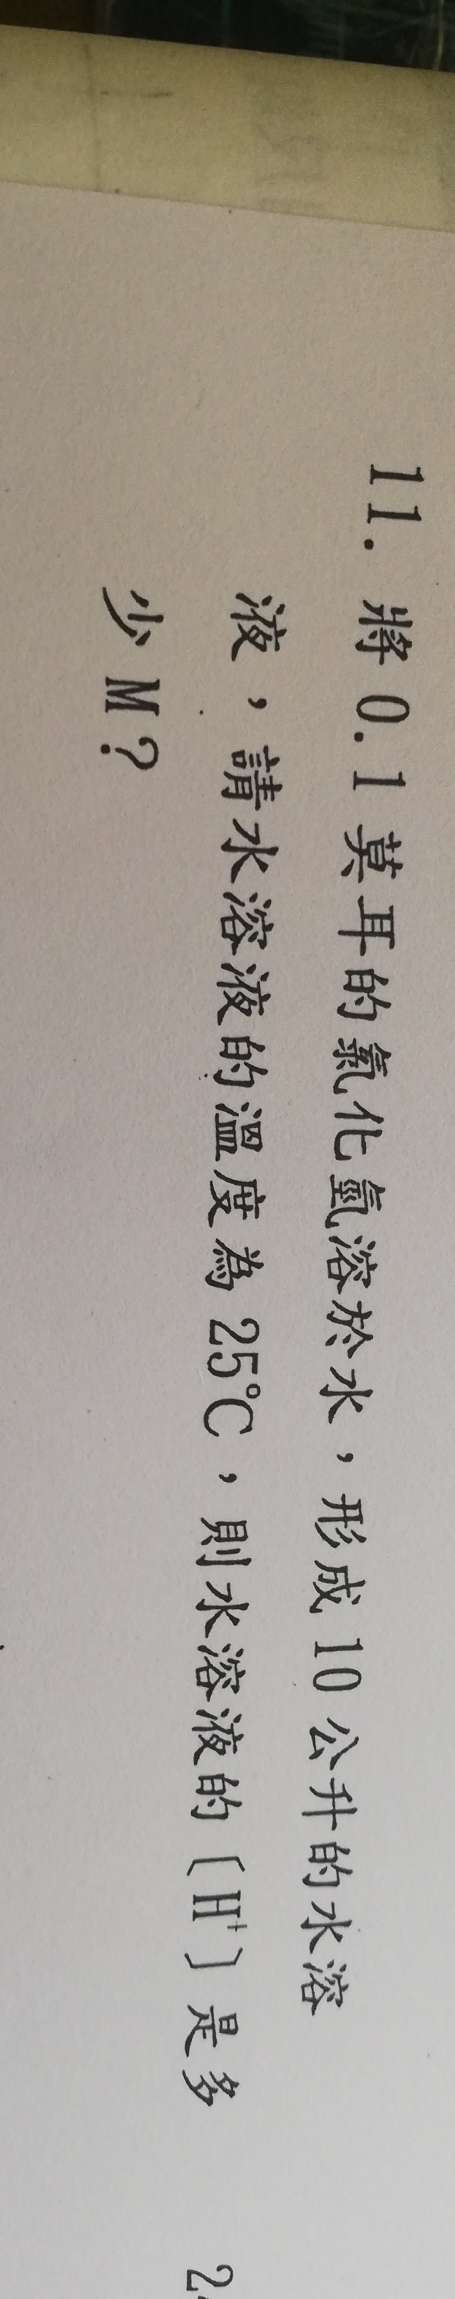 11. 將 0.1 莫耳的氯化氫溶於水，形成 10 公升的水溶
液，請水溶液的溫度為 25℃，則水溶液的〔H⁺〕是多
少 M？
2